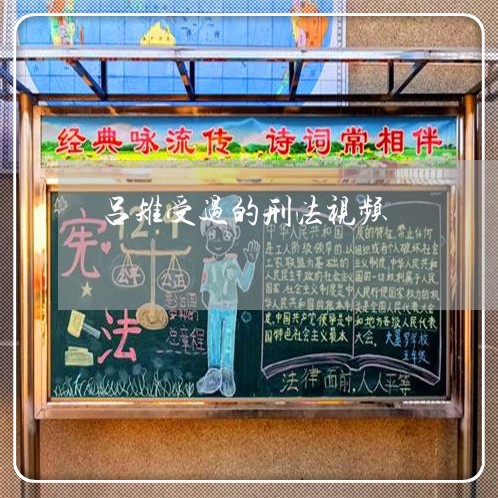 经典咏流传 诗词常相伴
吕雉受过的刑法视频
12.4
宪法
公平
公正
总章程
中华人民共和国
是工人阶级领导的,以
工农联盟为基础的
人民民主专政的社会主义
国家,社会主义制度是中
华人民共和国的根本制
度,中国共产党领导是中
国特色社会主义最本
质的特征,禁止任何
组织或者个人破坏社会
主义制度,中华人民共和
国的一切权利属于人民,
人民行使国家权力的机
关是全国人民代表大会
和地方各级人民代表
大会。
五年级
法律面前,人人平等